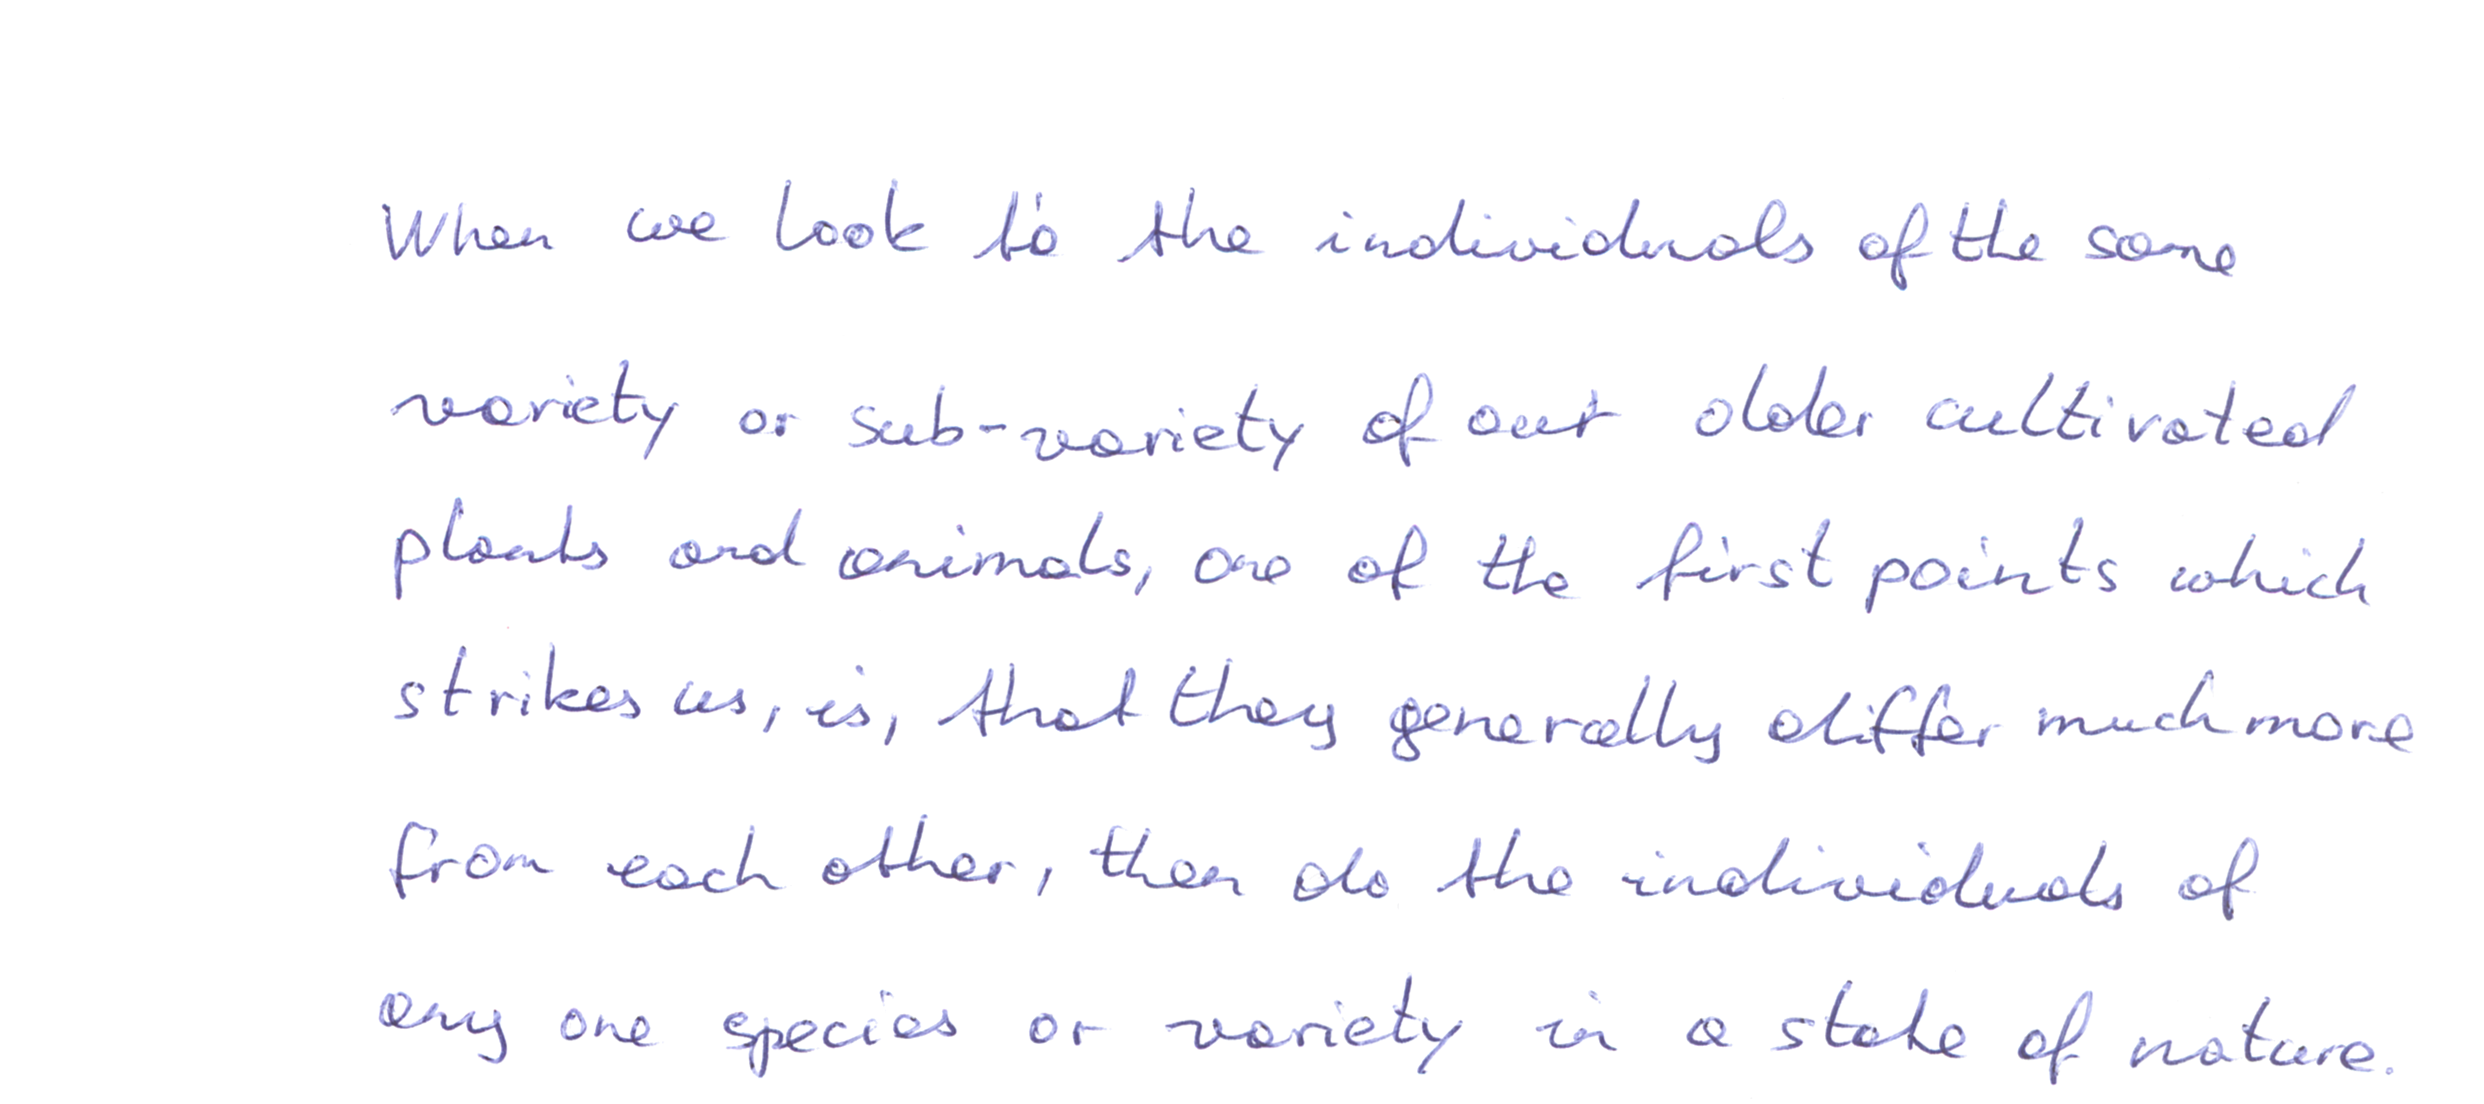 When we look to the individuals of the same
variety or sub-variety of our older cultivated
plants and animals, one of the first points which
strikes us, is, that they generally differ much more
from each other, then do the individuals of
any one species or variety in a state of nature.